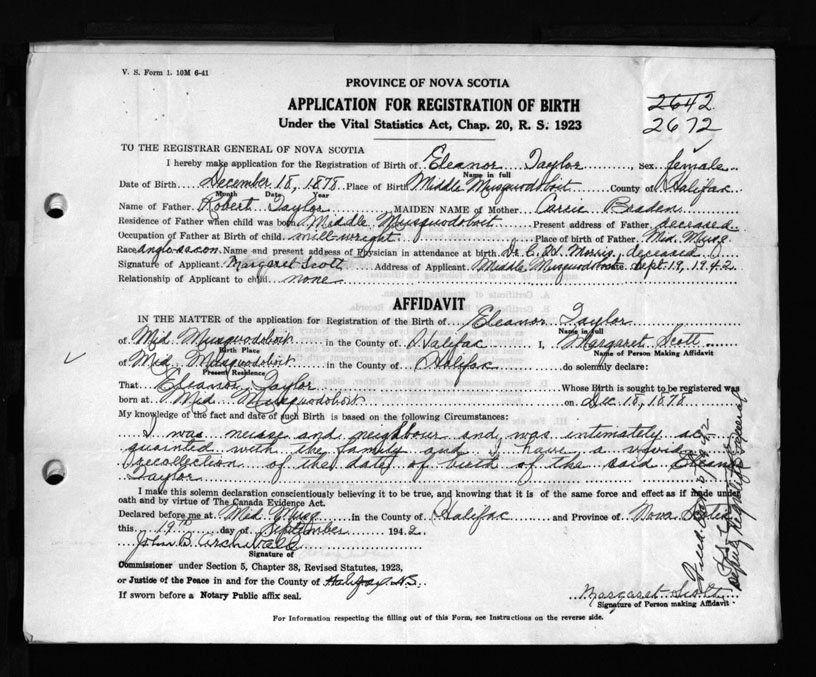 V. S. Form 1. 10M 6-41
PROVINCE OF NOVA SCOTIA
APPLICATION FOR REGISTRATION OF BIRTH
Under the Vital Statistics Act, Chap. 20, R. S. 1923
2642
2672
TO THE REGISTRAR GENERAL OF NOVA SCOTIA
I hereby make application for the Registration of Birth of Eleanor Taylor, Sex female
Name in full
Date of Birth December 18, 1878 Place of Birth Middle Musquodoboit County of Halifax
Month Date Year
Name of Father Robert Taylor MAIDEN NAME of Mother Carrie Braden
Residence of Father when child was born Middle Musquodoboit Present address of Father deceased
Occupation of Father at Birth of child millwright Place of Birth of Father Mid. Musq.
Race anglo-saxon Name and present address of Physician in attendance at birth Dr. C. W. Morris, deceased
Signature of Applicant Margaret Scott Address of Applicant Middle Musquodoboit Date Sept. 19, 1942
Relationship of Applicant to child none
AFFIDAVIT
IN THE MATTER of the application for Registration of the Birth of Eleanor Taylor
Name in full
of Mid. Musquodoboit in the County of Halifax I, Margaret Scott
Birth Place Name of Person Making Affidavit
of Mid. Musquodoboit in the County of Halifax do solemnly declare:
Present Residence
That Eleanor Taylor Whose Birth is sought to be registered was
born at Mid Musquodoboit on Dec 18, 1878
My knowledge of the fact and date of such Birth is based on the following Circumstances:
I was neisse and neighbour and was intimately ac
quainted with the family and I have a vivid
recollection of the date of birth of the said Eleanor
Taylor
I make this solemn declaration conscientiously believing it to be true, and knowing that it is of the same force and effect as if made under
oath and by virtue of The Canada Evidence Act.
Declared before me at Mid. Musq in the County of Halifax and Province of Nova Scotia
this 19th day of September 1942
John B. Archibald
Signature of
Commissioner under Section 5, Chapter 38, Revised Statutes, 1923,
or Justice of the Peace in and for the County of Halifax N.S.
If sworn before a Notary Public affix seal.
Margaret Scott
Signature of Person making Affidavit
For Information respecting the filling out of this Form, see Instructions on the reverse side.
Deputy Registrar General